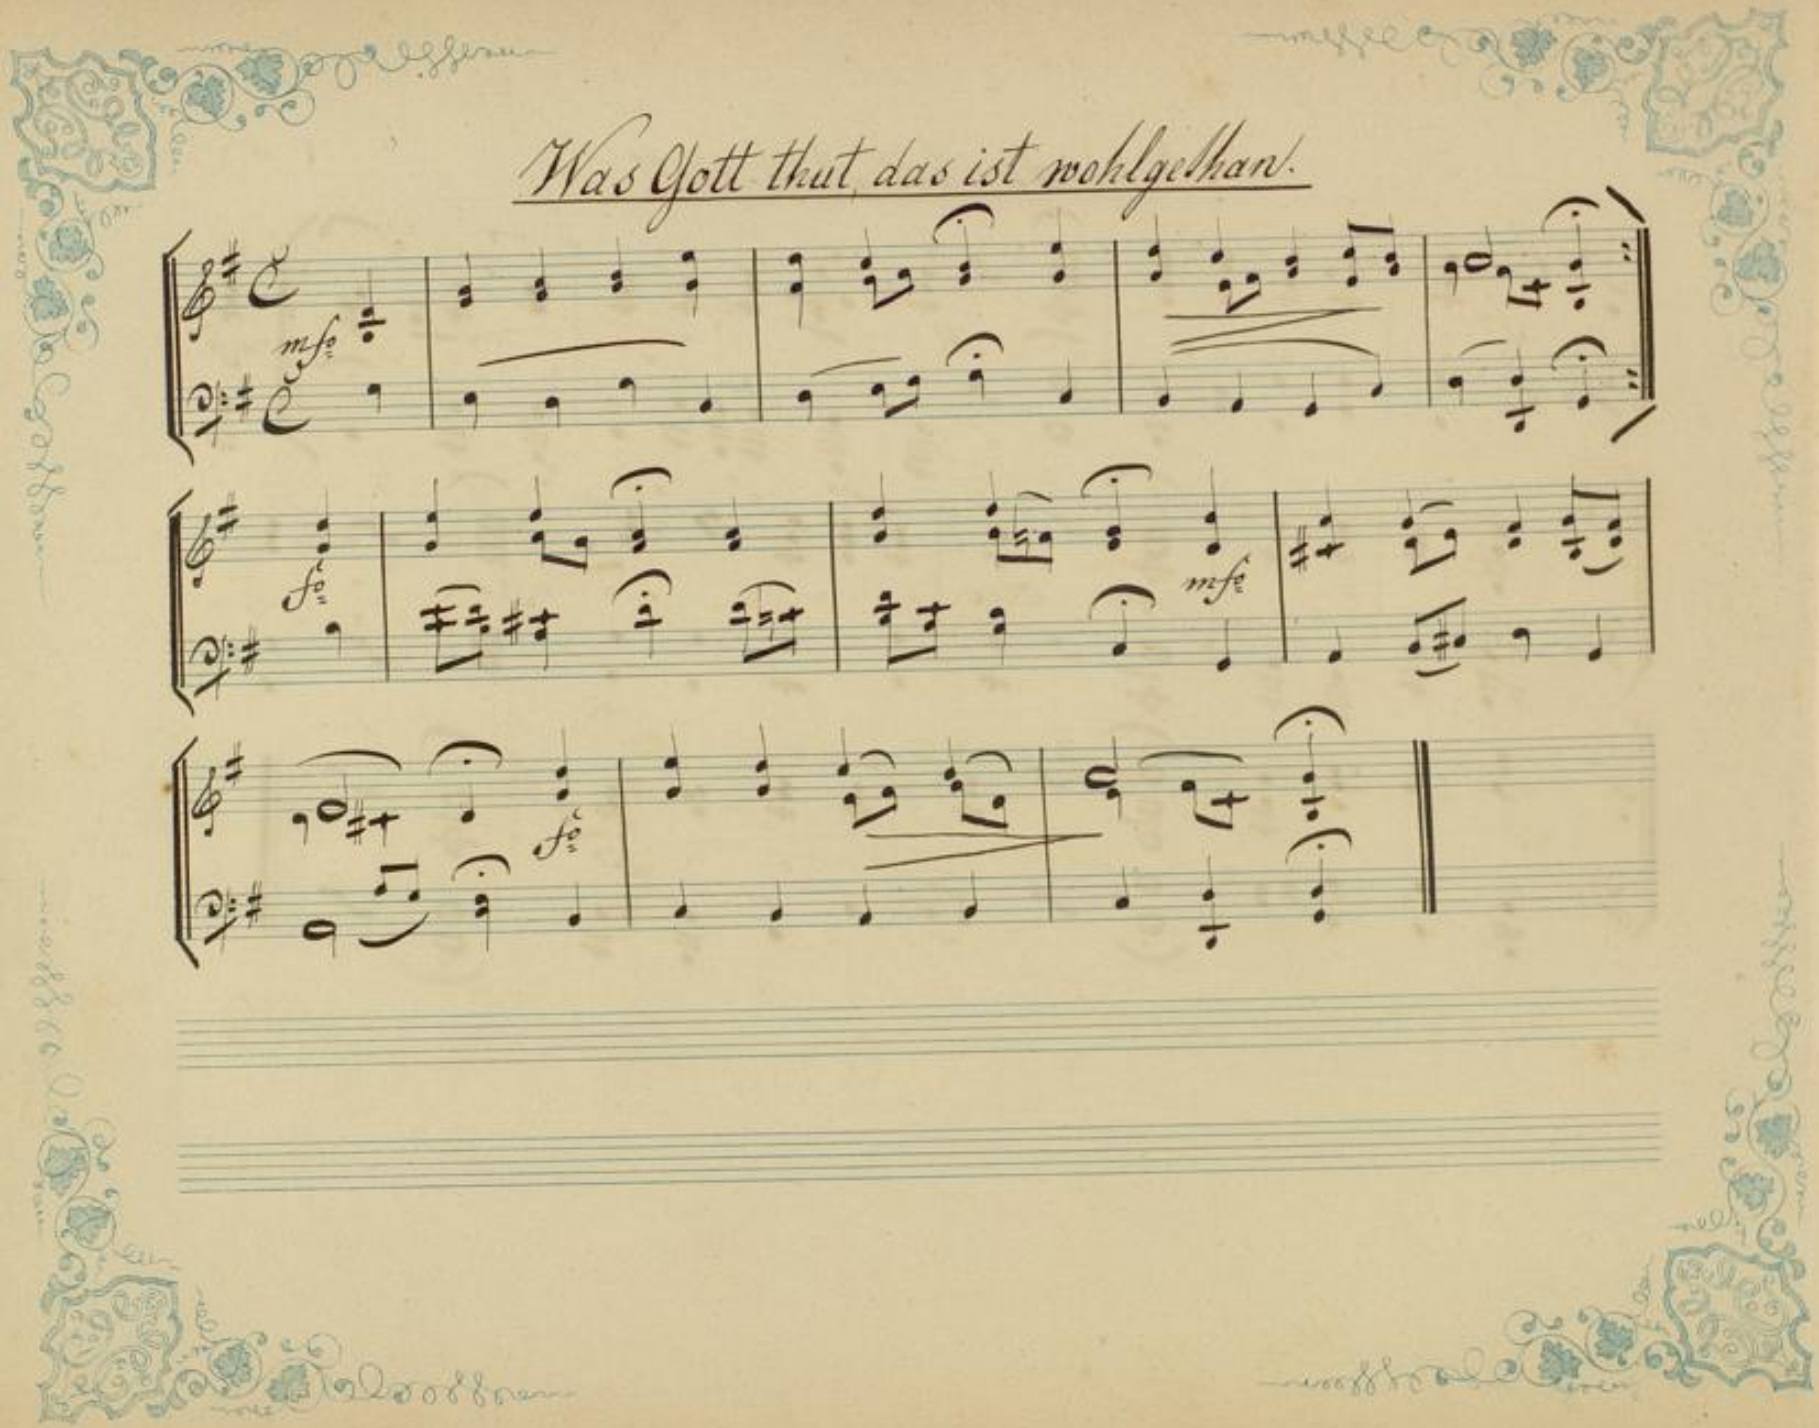 Was Gott thut, das ist wohlgethan.
mfo
fo
mfo
fo